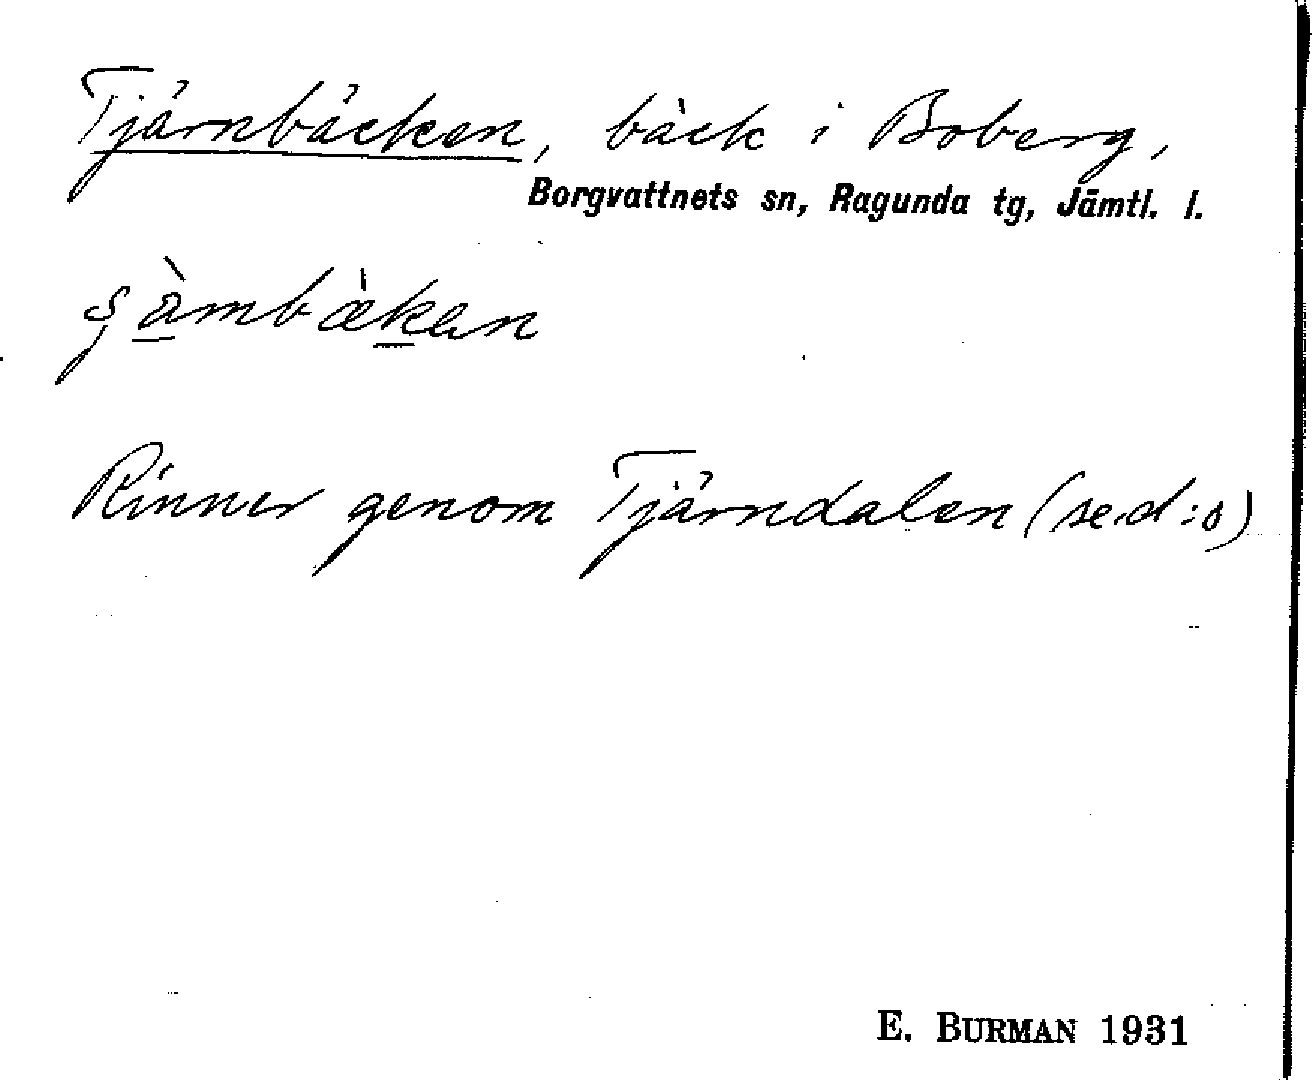 Tjärnbäcken, bäck i Boberg,
Borgvattnets sn, Ragunda tg, Jämtl. l.
Rinner genom Tjärndalen (se. d:o)
E. BURMAN 1931